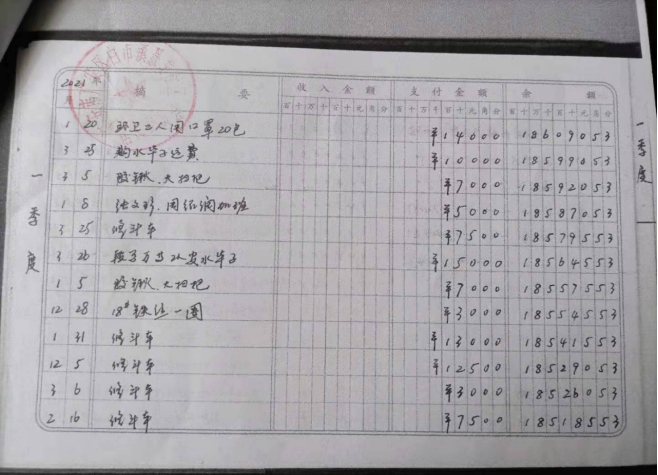 2021 年
摘 要 收入金额 支付金额 余 额
月 百十万千百十元角分 百十万千百十元角分 百十万千百十元角分
1 20 环卫工人用口罩20包 ¥14000 18609053
3 25 购水华子运费 ¥10000 18599053
3 5 铁锹、大扫把 ¥7000 18592053
1 8 加班 ¥5000 18587053
3 25 修斗车 ¥7500 18579553
3 26 水华子 ¥15000 18564553
1 5 铁锹、大扫把 ¥7000 18557553
12 28 18#铁丝一圈 ¥3000 18554553
1 31 修斗车 ¥13000 18541553
12 5 修斗车 ¥12500 18529053
3 6 修斗车 ¥3000 18526053
2 16 修斗车 ¥7500 18518553
一季度
一季度